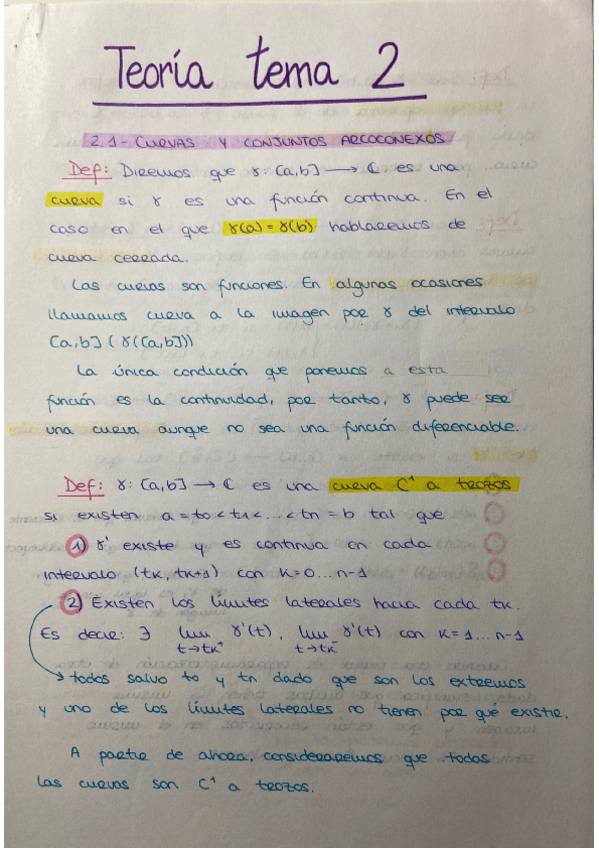 Teoría tema 2
2.1- CURVAS Y CONJUNTOS ARCOCONEXOS
Def: Diremos que γ: [a,b] → ℂ es una
curva si γ es una función continua. En el
caso en el que γ(a) = γ(b) hablaremos de
curva cerrada.
Las curvas son funciones. En algunas ocasiones
llamamos curva a la imagen por γ del intervalo
[a,b] (γ([a,b]))
La única condición que ponemos a esta
función es la continuidad, por tanto, γ puede ser
una curva aunque no sea una función diferenciable.
Def: γ: [a,b] → ℂ es una curva C¹ a trozos
si existen a = t0 < t1 < ... < tn = b tal que
1) γ' existe y es continua en cada
intervalo (tk, tk+1) con k=0...n-1
2) Existen los límites laterales hacia cada tk.
Es decir: ∃ lim γ'(t), lim γ'(t) con k=1...n-1
t→tk⁺ t→tk⁻
→ todos salvo t0 y tn dado que son los extremos
y uno de los límites laterales no tienen por qué existir.
A partir de ahora, consideraremos que todas
las curvas son C¹ a trozos.